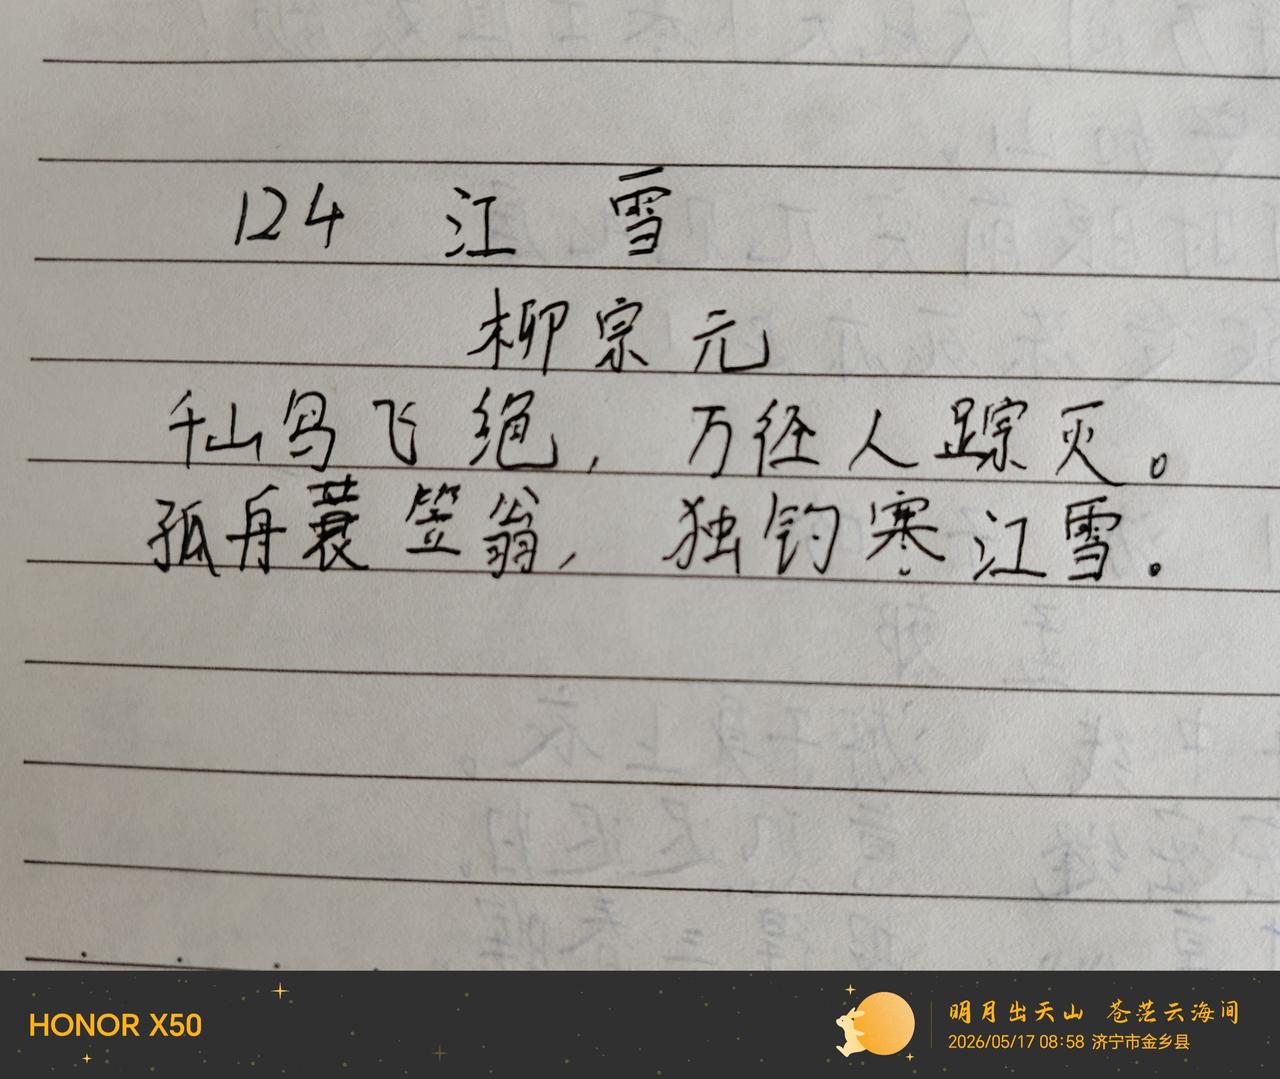 124 江 雪
柳宗元
千山鸟飞绝，万径人踪灭。
孤舟蓑笠翁，独钓寒江雪.
HONOR X50
明月出天山 苍茫云海间
2026/05/17 08:58 济宁市金乡县